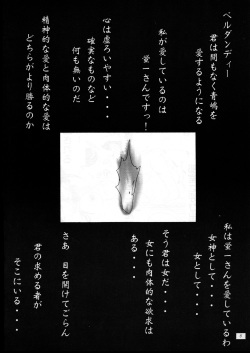 ベルダンディー
君は間もなく青嶋を
愛するようになる
私が愛しているのは
螢一さんですっ！
心は虚ろいやすい・・・
確実なものなど
何も無いのだ
精神的な愛と肉体的な愛は
どちらがより勝るのか
私は螢一さんを愛しているわ
女神として・・・・
女として・・・・
そう君は女だ・・・・
女にも肉体的な欲求は
ある・・・・
さあ　目を開けてごらん
君の求める者が
そこにいる・・・・